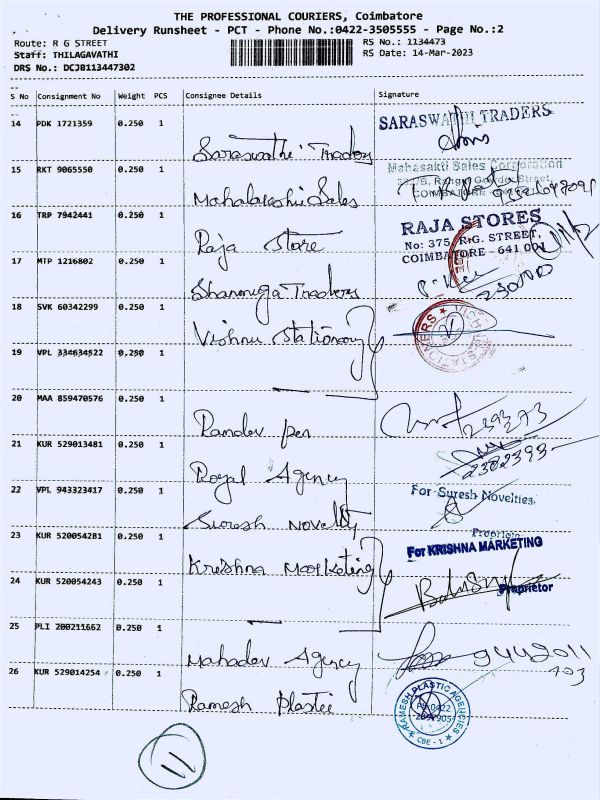 THE PROFESSIONAL COURIERS, Coimbatore
Delivery Runsheet - PCT - Phone No.:0422-3505555 - Page No.:2
Route: R G STREET RS No.: 1134473
Staff: THILAGAVATHI RS Date: 14-Mar-2023
DRS No.: DCJB113447302
S No Consignment No Weight PCS Consignee Details Signature
14 PDK 1721359 0.250 1 SARASWATHI TRADERS
Saraswathi Traders
15 RKT 9065550 0.250 1 Mahasakti Sales Corporation
Mahalakshmi Sales COIMBATORE
16 TRP 7942441 0.250 1 RAJA STORES
Raja Store No: 375, R.G. STREET,
17 MTP 1216802 0.250 1 COIMBATORE - 641 001
Shanmuga Traders
18 SVK 60342299 0.250 1
Vishnu Stationary
19 VPL 334634522 0.250 1
20 MAA 859470576 0.250 1
Pandev pen 239273
21 KUR 529013481 0.250 1
Royal Agency 2382393
22 VPL 943323417 0.250 1 For Suresh Novelties,
Suresh Novelty Proprietor
23 KUR 520054281 0.250 1 For KRISHNA MARKETING
Krishna Marketing
24 KUR 520054243 0.250 1 Proprietor
25 PLI 200211662 0.250 1
Mahadev Agency 9442011
103
26 KUR 529014254 0.250 1
Ramesh Plastic RAMESH PLASTIC AGENCIES
CBE - 1
11